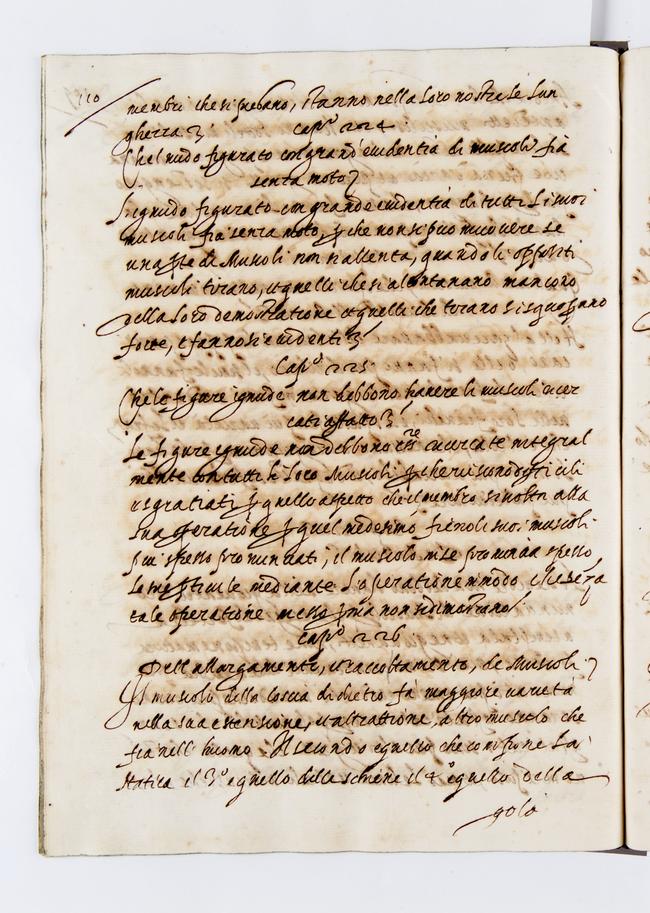 110
membri che si piegano, stanno nella loro nostre le lun
gherra
Cap.º 224
Che'l nudo figurato con grand'euidentia di muscoli fia
senza moto
Il gnudo figurato con grande euidentia di tutti li suoi
muscoli fia senza moto, che non si puo muouere se
una de Muscoli non si allenta, quando li oppositi
muscoli tirano, et quelli che si alontanano mancono
della loro demostratione et quelli che tirano si
forte, e fannosi euidenti
Cap.º 225
Che le figure ignude non debbono hauere li muscoli ricer
cati affatto
Le figure ignude non debbono cercate integral
mente con tutti li loro Muscoli
et sgratiati quello aspetto che il membro si uolta alla
sua operatione quel medesimo fieno li suoi muscoli
piu spesso pronuntiati, il muscolo in se pronuntia spesso
le mediante l'operatione in modo, che senza
tale operatione non si dimostrano
Cap.º 226
Dell'allargamenti, et raccoltamento, de Muscoli
Il muscolo della coscia di dietro fa maggiore uarieta
nella sua estensione, et altrattione, altro muscolo che
sia nell'huomo. Il secondo e quello che compone la
Natica il 3º e quello delle schiene il 4º e quello della
gola